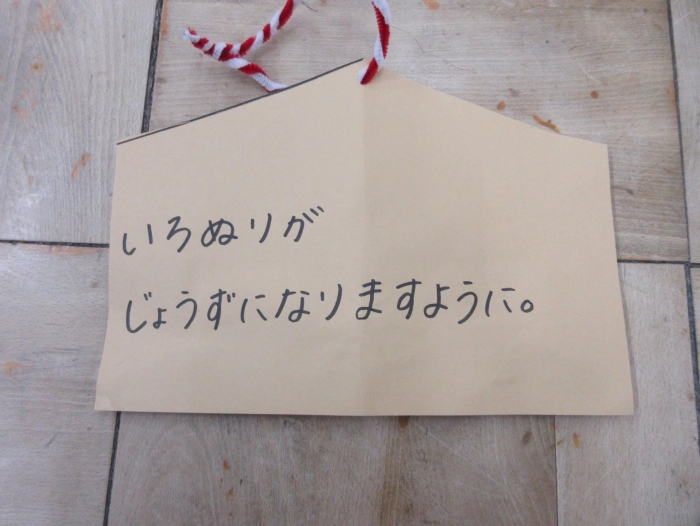 いろぬりが
じょうずになりますように。